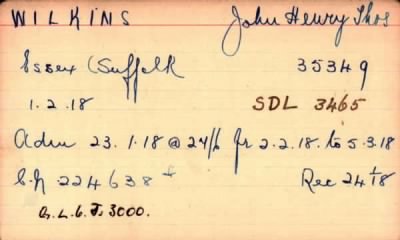 WILKINS John Henry Thos
Essex (Suffolk 35349
1.2.18 SDL 3465
Adm 23.1.18 @ 27/6 fr 2.2.18. to 5.3.18
S.N 224638 Rec 24
G.L.6. J. 3000.